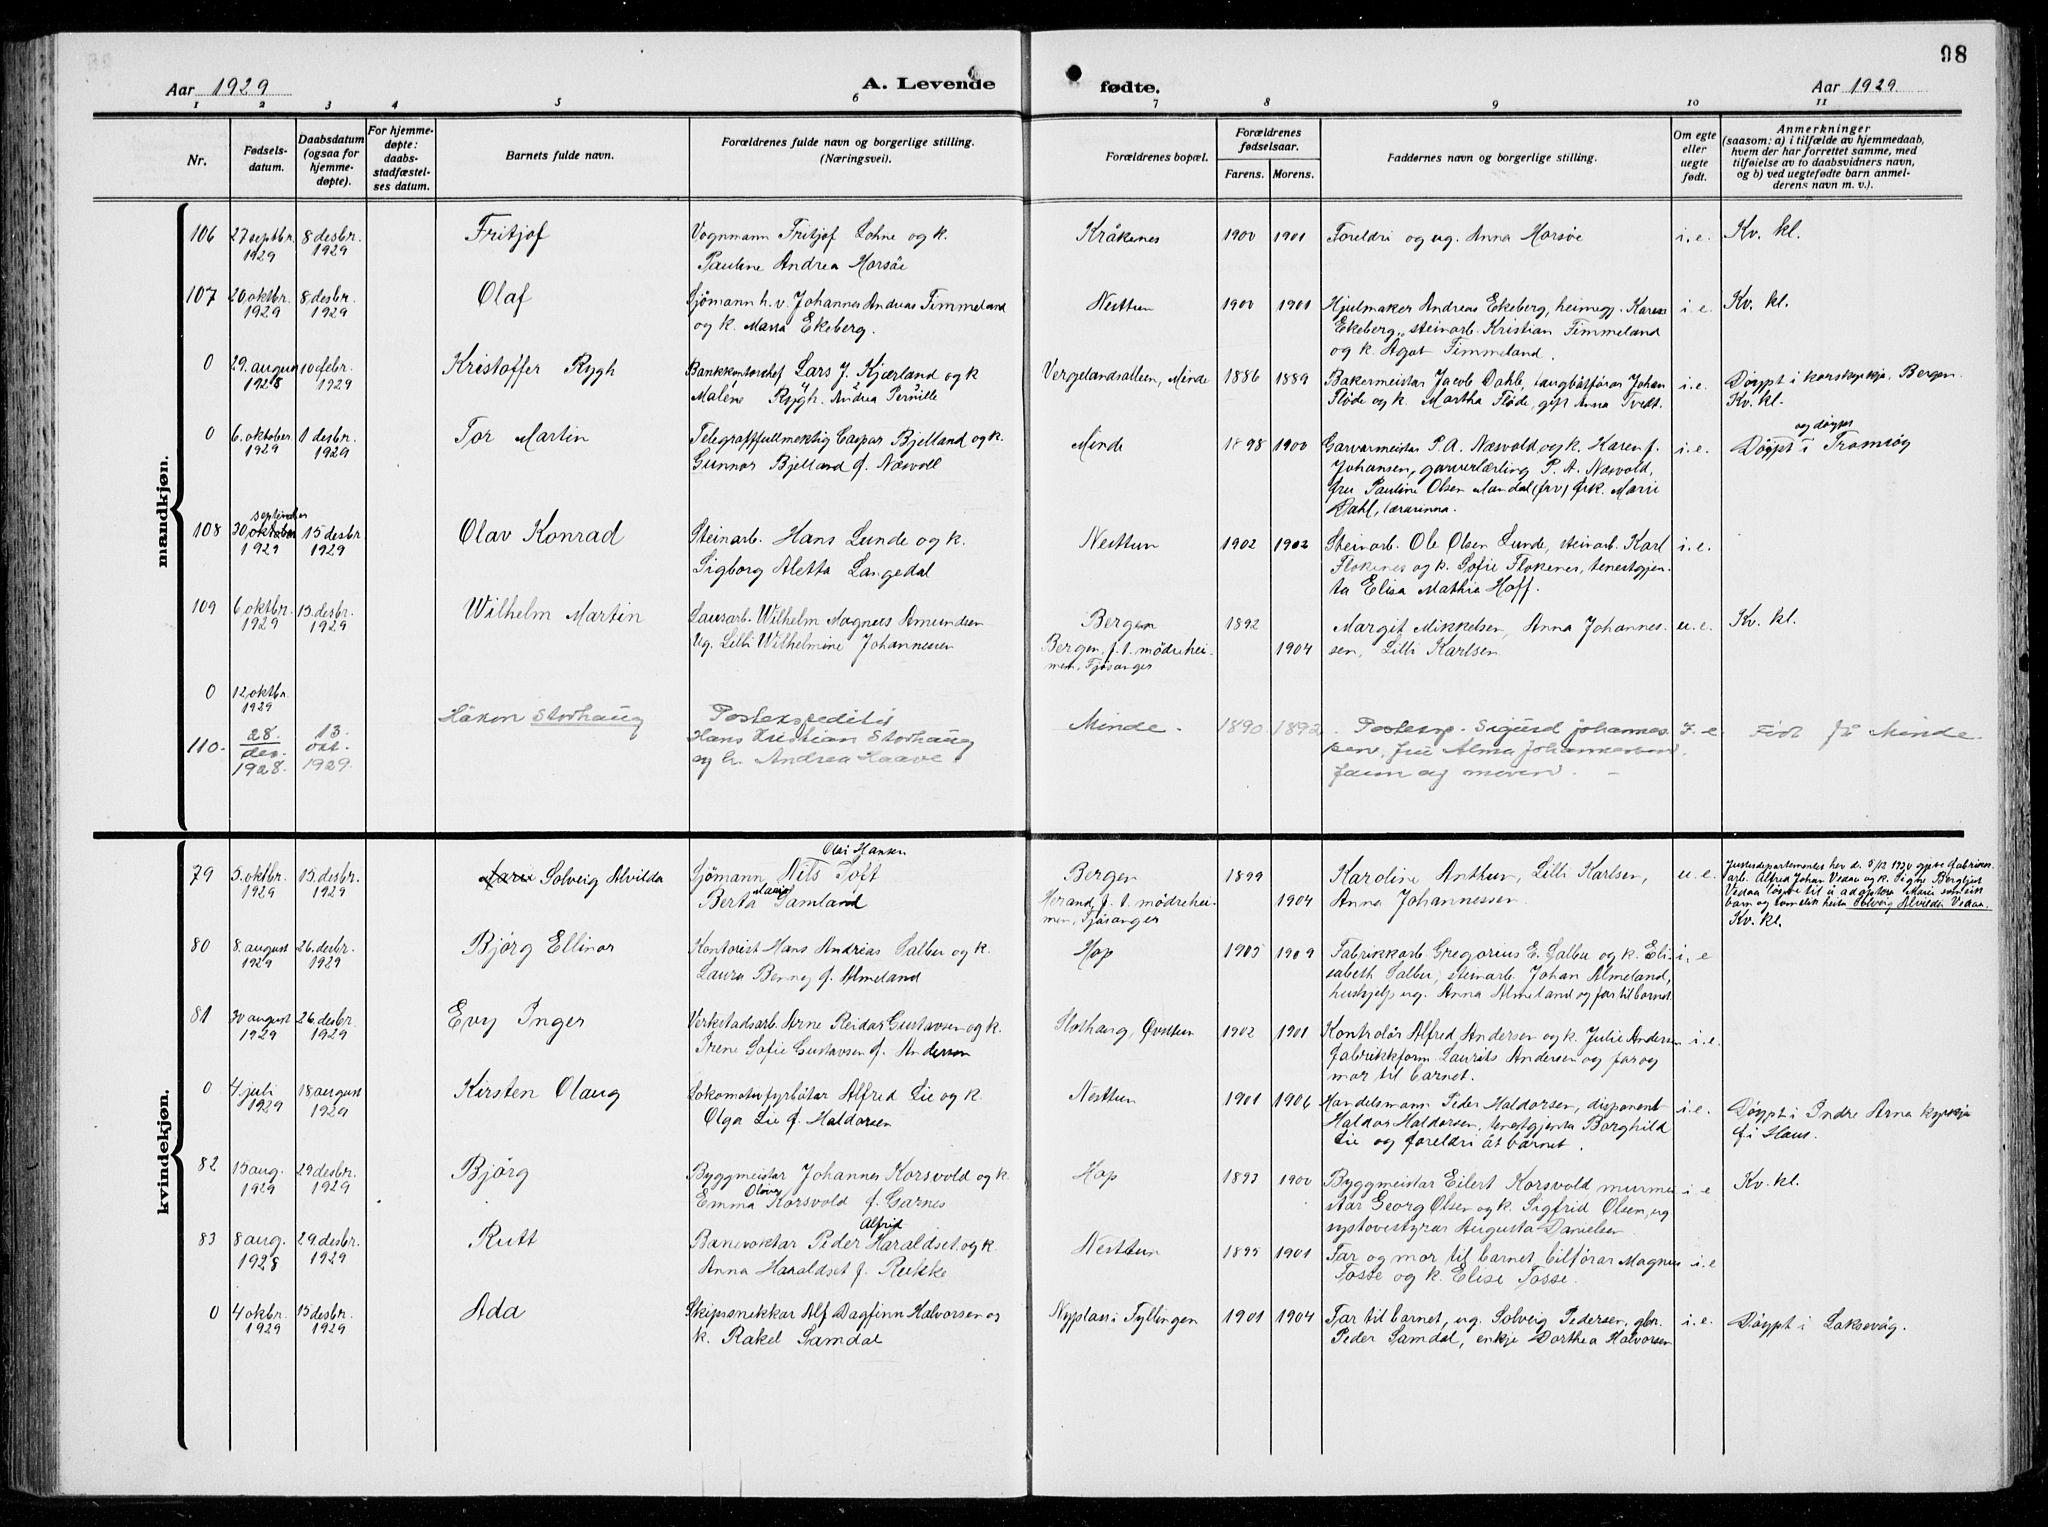 98
Aar 1929
A. Levende
fødte.
Aar 1929
1 2 3 4 5 6 7 8 9 10 11
Nr.
Fødsels-
datum.
Daabsdatum
(ogsaa for
hjemme-
døpte).
For hjemme-
døpte:
daabs-
stadfæstel-
ses datum.
Barnets fulde navn.
Forældrenes fulde navn og borgerlige stilling.
(Næringsvei).
Forældrenes bopæl.
Forældrenes
fødselsaar.
Farens. Morens.
Faddernes navn og borgerlige stilling.
Om egte
eller
uegte
født.
Anmerkninger
(saasom: a) i tilfælde av hjemmedaab,
hvem der har forrettet samme, med
tilføielse av to daabsvidners navn,
og b) ved uegtefødte barn anmel-
derens navn m. v.).
mandkjøn.
106 27 septbr. 8 desbr. Fritjof Vognmann Fritjof Lohne og k. Kråkenes 1900 1901 Foreldri og ug. Anna Morsöe i. e. Kv. kl.
1929 1929 Pauline Andrea Morsöe
107 20 oktbr. 8 desbr. Olaf Sjömann h. v. Johannes Andreas Timmeland Nesttun 1900 1901 Hjulmaker Andreas Ekeberg, heimegj. Karen i. e. Kv. kl.
1929 1929 og k. Maria Ekeberg. Ekeberg, steinarb. Kristian Timmeland
og k. Agat Timmeland.
0 29. august 10 febr. Kristoffer Rygh Bankkontorchef Lars J. Kjærland og k Vergelandsalleen, Minde 1886 1889 Bakermeistar Jacob Dahle, taugbåtförar Johan i. e. Döypt i korskyrkja, Bergen.
1928 1929 Malene Rygh. Andrea Pernille Flöde og k. Martha Flöde, gift Anna Tvedt. Kv. kl.
0 6. oktober 1 desbr. Tor Martin Telegraffullmektig Caspar Bjelland og k. Minde 1898 1900 Garvarmeistar P. A. Næsvold, og k. Karen f. i. e. Döypt i Tromsöy
1929 1929 Gunnor Bjelland f. Næsvoll Johansen, garverlærling P. A. Næsvold,
fru Pauline Olsen Mandal (frv) frk. Marie
Dahl, lærarinna.
september
108 30 oktober 15 desbr. Olav Konrad Steinarb. Hans Lunde og k. Nesttun 1902 1902 Steinarb. Ole Olsen Lunde, steinarb. Karl i. e.
1929 1929 Sigborg Aletta Langedal Flokenes og k. Sofie Flokenes, tenestgjen-
ta Elisa Mathia Hoff.
109 6 oktbr. 15 desbr. Wilhelm Martin Lausarb. Wilhelm Magnus Amundsen Bergen 1892 Margit Mikkelsen, Anna Johannes- u. e. Kv. kl.
1929 1929 Ug. Lilli Wilhelmine Johannessen Bergen, f. t. mödrehei- 1904 sen, Lilli Karlsen
men, Fjösanger
0 12 oktbr.
1929
110. 28. 13. Håkon Storhaug Postekspeditör Minde. 1890. 1892. Postexp. Sigurd Johannes- i. e Födt på Minde.
des. okt. Hans Kristian Storhaug sen, fru Alma Johannessen,
1928. 1929. og h. Andrea Haave. faren og moren.
kvindekjøn.
Olai Hansen
79 5. oktbr. 15 desbr. Marie Solveig Alvilda Sjömann Nils Toft Bergen 1899 Karoline Anthun, Lilli Karlsen, u. e. Justisdepartementet hev d. 5/12 1930 gjeve fabrikk-
1929 1929 Berta Maria Samland Herand, f. t. mödrehei- 1904 Anna Johannessen. arb. Alfred Johan Vedaa og k. Signe Bergljot
men, Fjösanger Vedaa löyve til å adoptera Marie som sitt
barn og som slik heita Solveig Alvilda Vedaa.
Kv. kl.
80 8. august 26. desbr. Björg Ellinor Kontorist Hans Andreas Salbu og k. Hop 1905 1909 Fabrikkarb. Gregorius E. Salbu og k. Eli- i. e
1929 1929 Laura Benny f. Almeland sabeth Salbu, steinarb. Johan Almeland,
hushjelp ug. Anna Almeland og far til barnet
81 30 august 26. desbr. Evy Inger Verkstadsarb. Arne Reidar Gustavsen og k. Slothaug, Övsttun 1902 1901 Kontrolör Alfred Andersen og k. Julie Andersen i. e.
1929 1929 Irene Sofie Gustavsen f. Andersen fabrikkform. Laurits Andersen og far og
mor til barnet.
0 4 juli 18 august Kirsten Olaug Lokomotivfyrbötar Alfred Lie og k. Nesttun 1901 1906 Handelsmann Peder Haldorsen, disponent i. e. Döypt i Indre Arna kyrkja
1929 1929 Olga Lie f. Haldorsen Haldor Haldorsen, tenestgjenta Borghild f. i Haus.
Lie og foreldri åt barnet.
82 15 aug. 29 desbr. Björg Byggmeistar Johannes Korsvold og k. Hop 1893 1900 Byggmeistar Eilert Korsvold, murmei- i. e Kv. kl.
1929 1929 Emma Olava Korsvold f. Garnes star Georg Olsen og k. Sigfrid Olsen, ug
systovestyrar Augusta Danielsen
Alfrid
83 8 aug. 29 desbr. Rutt Banevaktar Peder Haraldset og k. Nesttun 1895 1901 Far og mor til barnet, bilförar Magnus i. e
1928 1929 Anna Haraldset f. Rekke Tosse og k. Elise Tosse.
0 4 oktbr 15 desbr. Ada Skipssnikkar Alf Dagfinn Halvorsen og Nyplass i Fyllingen 1901 1904 Far til barnet, ug. Solveig Pedersen, gbr. i. e. Döypt i Laksevåg.
1929 1929 k. Rakel Samdal Peder Samdal, enkje Dorthea Halvorsen